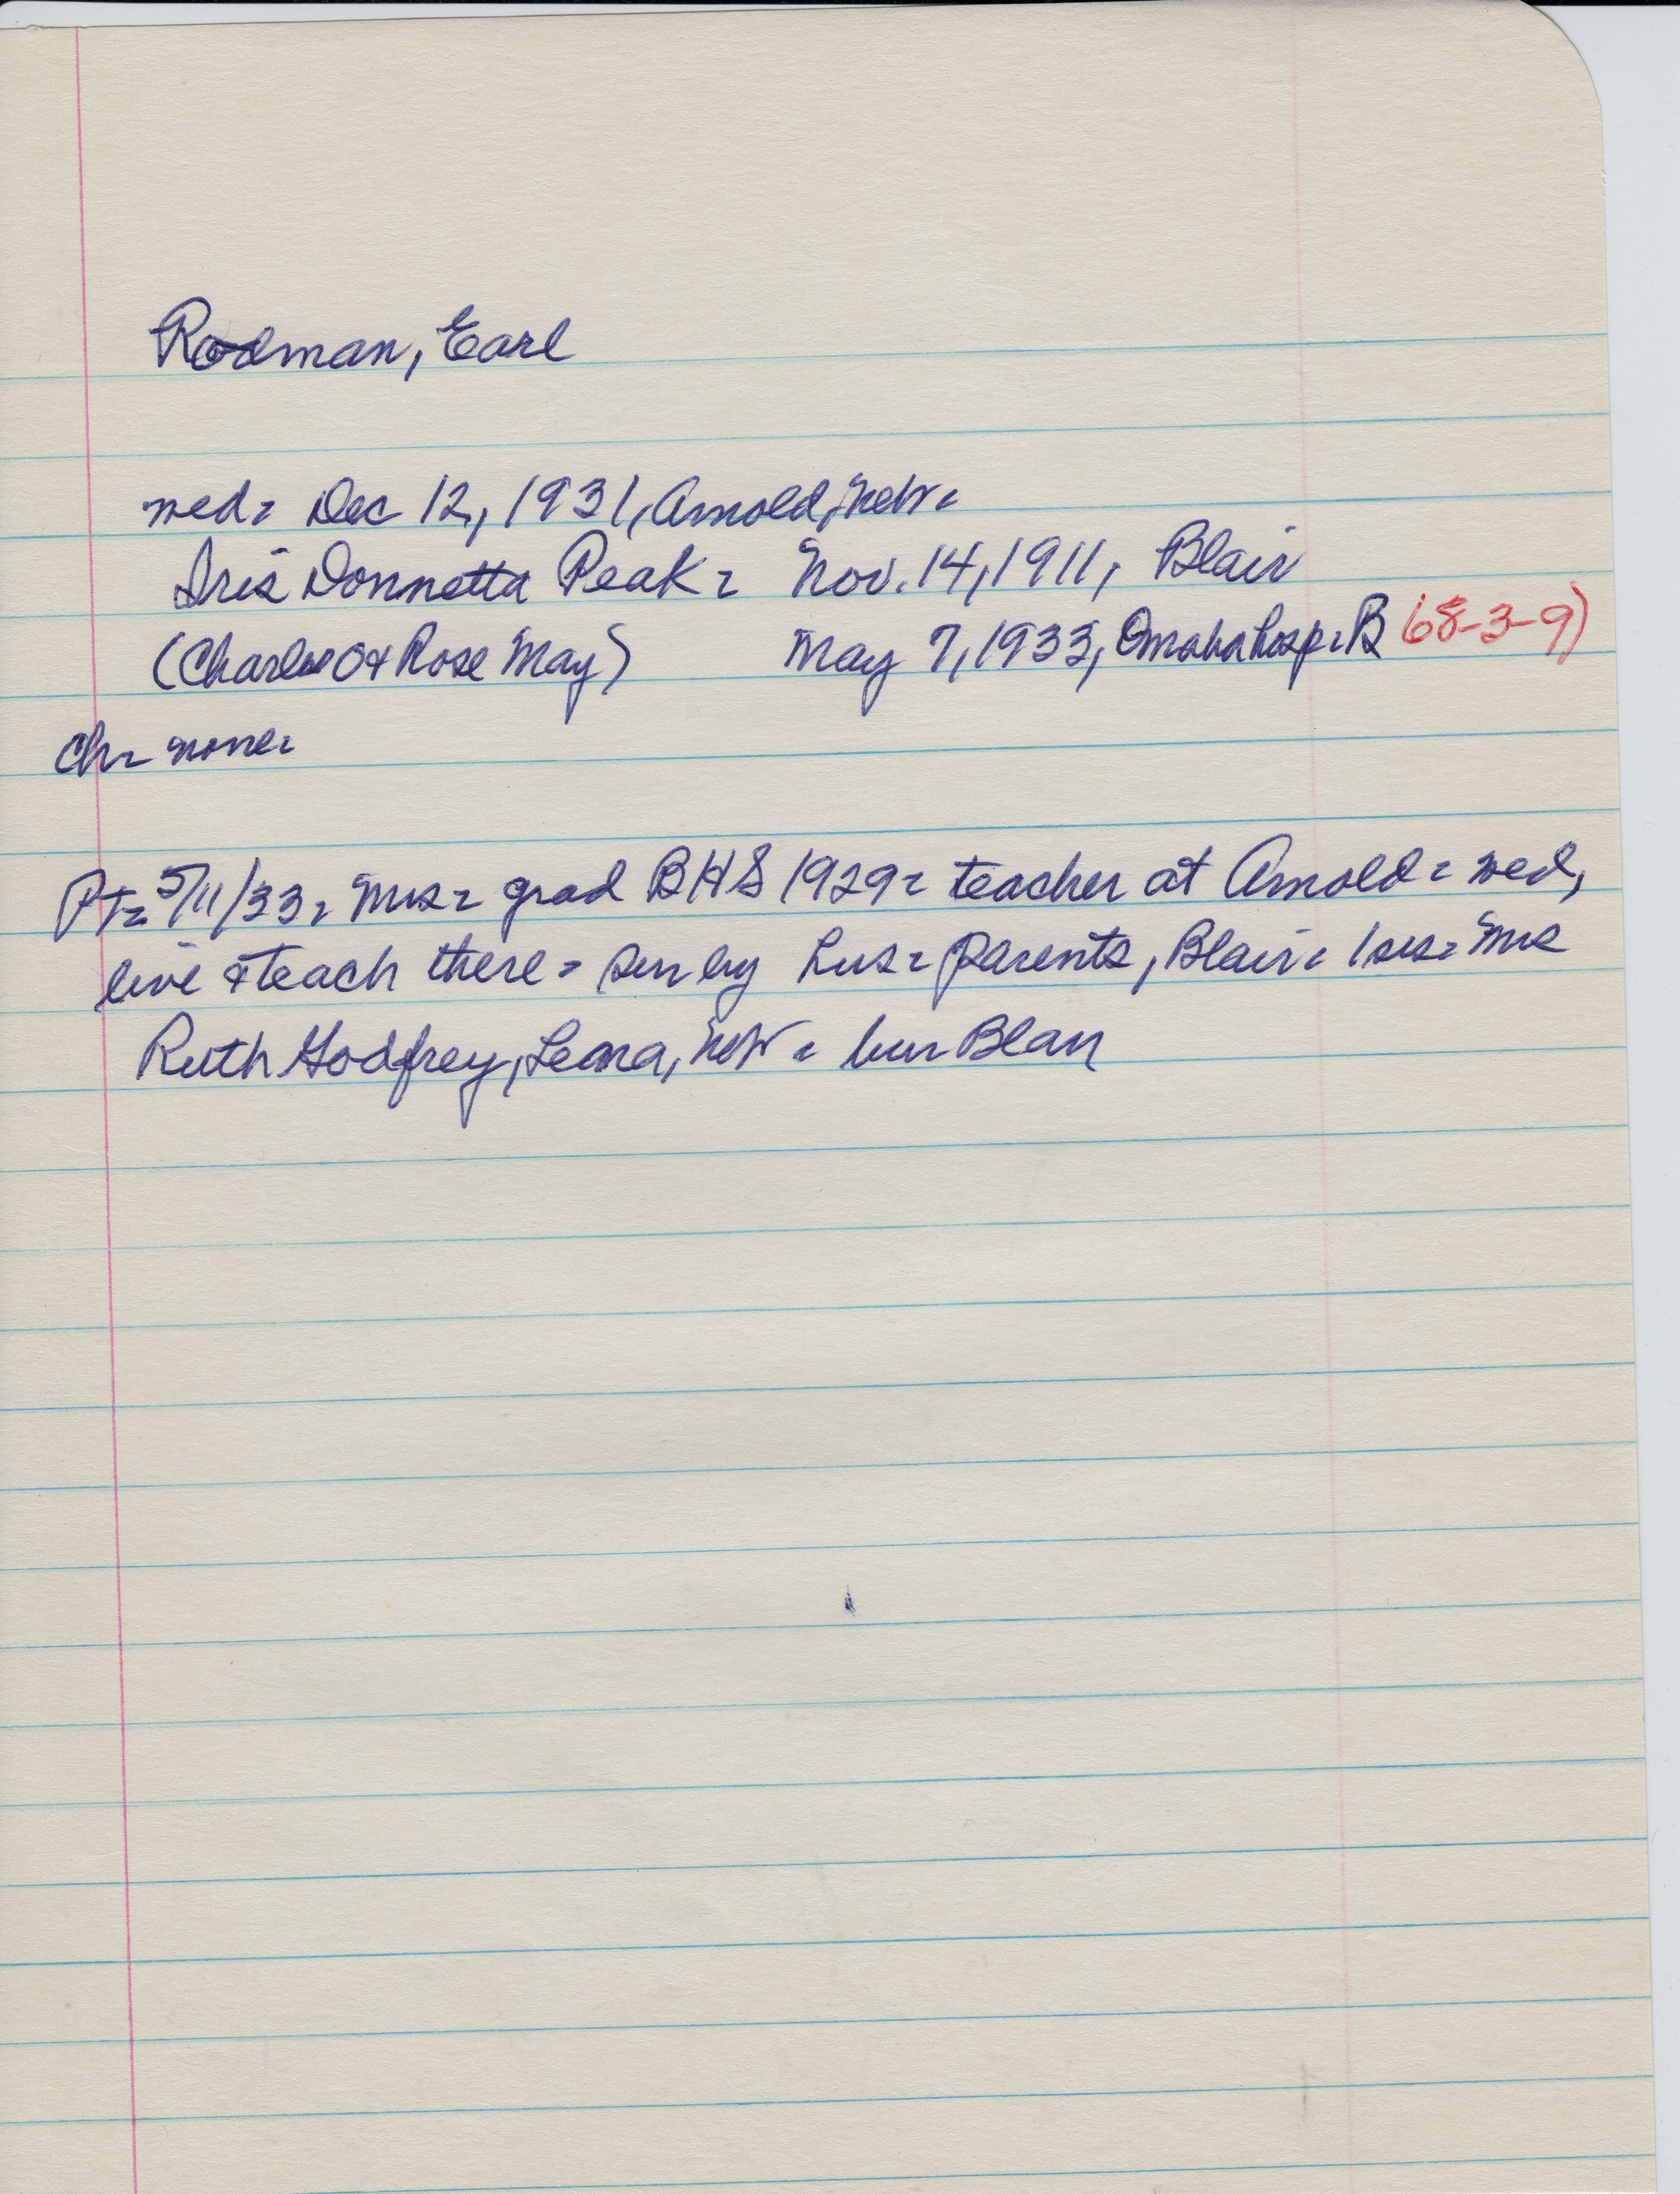 Rodman, Earl
wed= Dec 12, 1931, Arnold, Nebr=
Iris Donnetta Peak= Nov. 14, 1911, Blair
(Charles O & Rose May) May 7, 1933, Omaha hosp=B (68-3-9)
Ch= none=
PT= 5/11/33= Mrs= grad BHS 1929= teacher at Arnold= wed,
live & teach there= sur by hus= parents, Blair= 1 sis= Mrs
Ruth Godfrey, Nebr= bur Blair